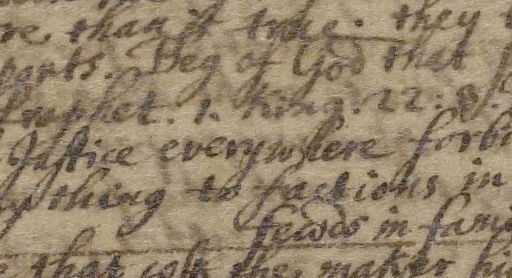 than if true. they
parts. Beg of God that
Prophet. 1. King. 22: 8.
Justice everywhere forbi
thing to factions in
fewds in fami
that the maker